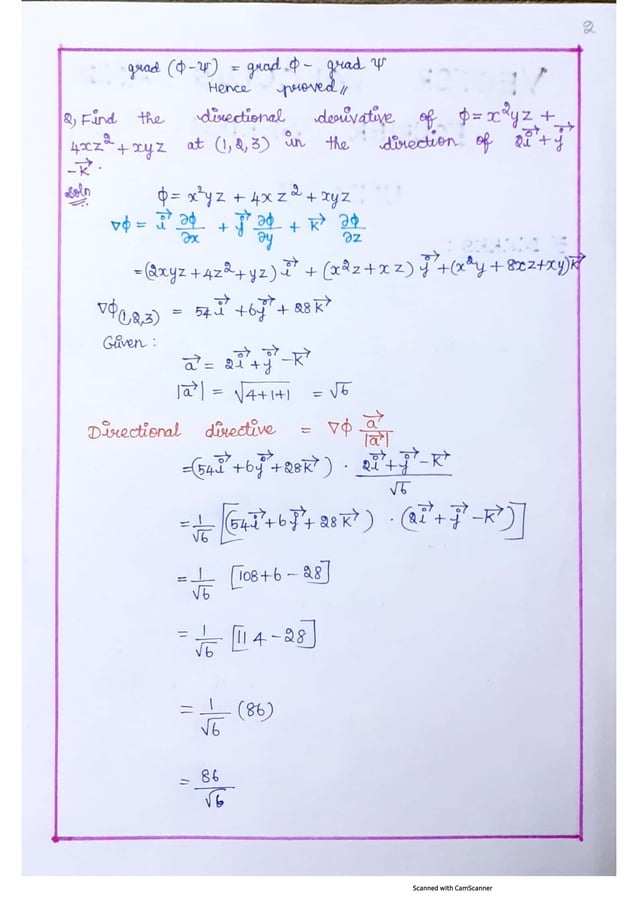 2
grad (ϕ-Ψ) = grad ϕ - grad Ψ
Hence proved //
Q, Find the directional derivative of ϕ = x²yz +
4xz² + xyz at (1,2,3) in the direction of 2i⃗ + j⃗
- k⃗.
Soln
ϕ = x²yz + 4xz² + xyz
∇ϕ = i⃗ ∂ϕ/∂x + j⃗ ∂ϕ/∂y + k⃗ ∂ϕ/∂z
= (2xyz + 4z² + yz) i⃗ + (x²z + xz) j⃗ + (x²y + 8xz + xy) k⃗
∇ϕ(1,2,3) = 54i⃗ + 6j⃗ + 28k⃗
Given :
a⃗ = 2i⃗ + j⃗ - k⃗
|a⃗| = √4+1+1 = √6
Directional directive = ∇ϕ a⃗/|a⃗|
= (54i⃗ + 6j⃗ + 28k⃗) · 2i⃗ + j⃗ - k⃗/√6
= 1/√6 [(54i⃗ + 6j⃗ + 28k⃗) · (2i⃗ + j⃗ - k⃗)]
= 1/√6 [108 + 6 - 28]
= 1/√6 [114 - 28]
= 1/√6 (86)
= 86/√6
Scanned with CamScanner